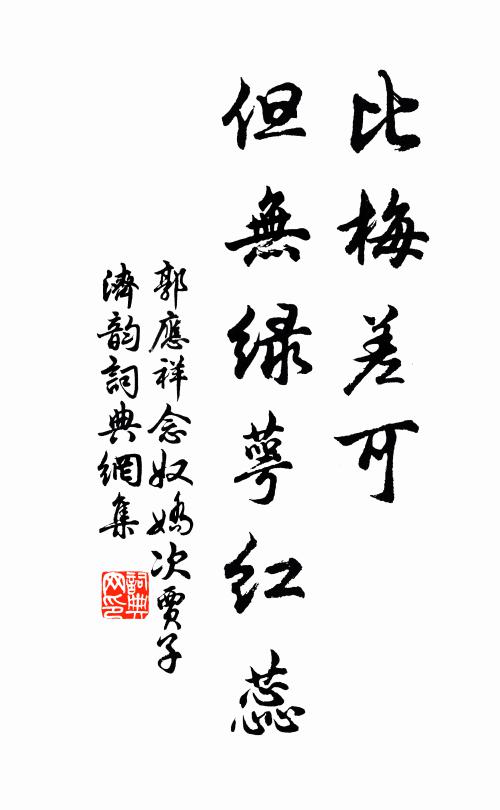 比梅差可
但無绿萼红蕊
郭應祥念奴嬌次賈子
濟韵詞典網集
詞典
网印